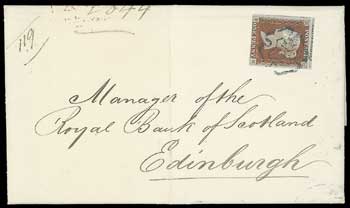 1844
119
Manager of the
Royal Bank of Scotland
Edinburgh